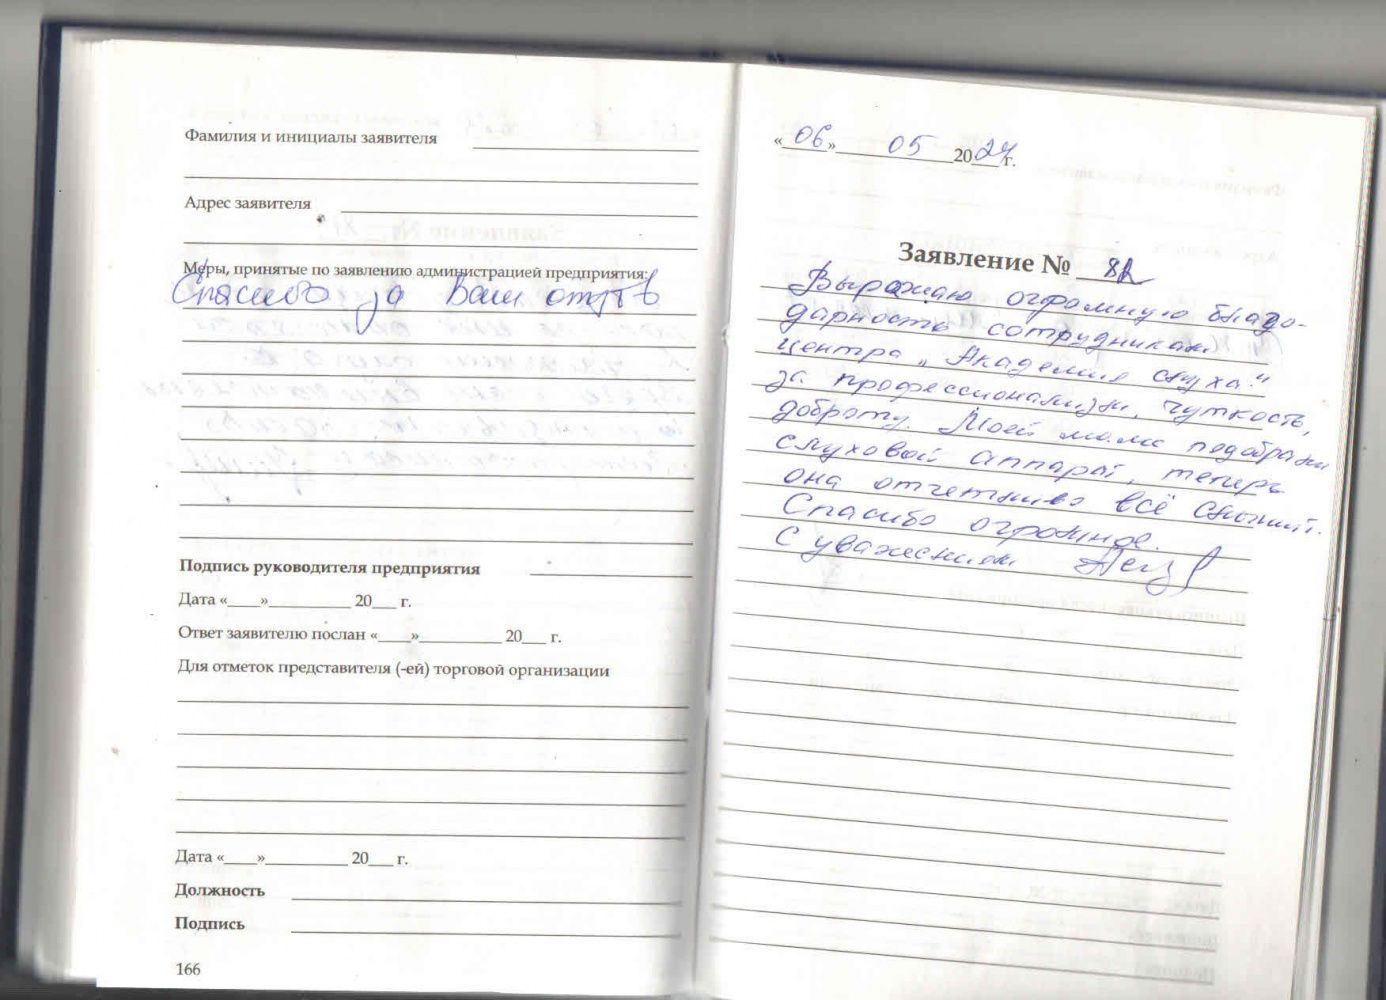 Фамилия и инициалы заявителя
Адрес заявителя
Меры, принятые по заявлению администрацией предприятия:
Спасибо за Ваш отзыв
Подпись руководителя предприятия
Дата «____»__________ 20___ г.
Ответ заявителю послан «____»__________ 20___ г.
Для отметок представителя (-ей) торговой организации
Дата «____»__________ 20___ г.
Должность
Подпись
166
«06» 05 2024 г.
Заявление № 82
Выражаю огромную благо-
дарность сотрудникам
центра „Академия слуха"
за профессионализм, чуткость,
доброту. Моей маме подобрали
слуховой аппарат, теперь
она отчетливо всё слышит.
Спасибо огромное.
С уважением